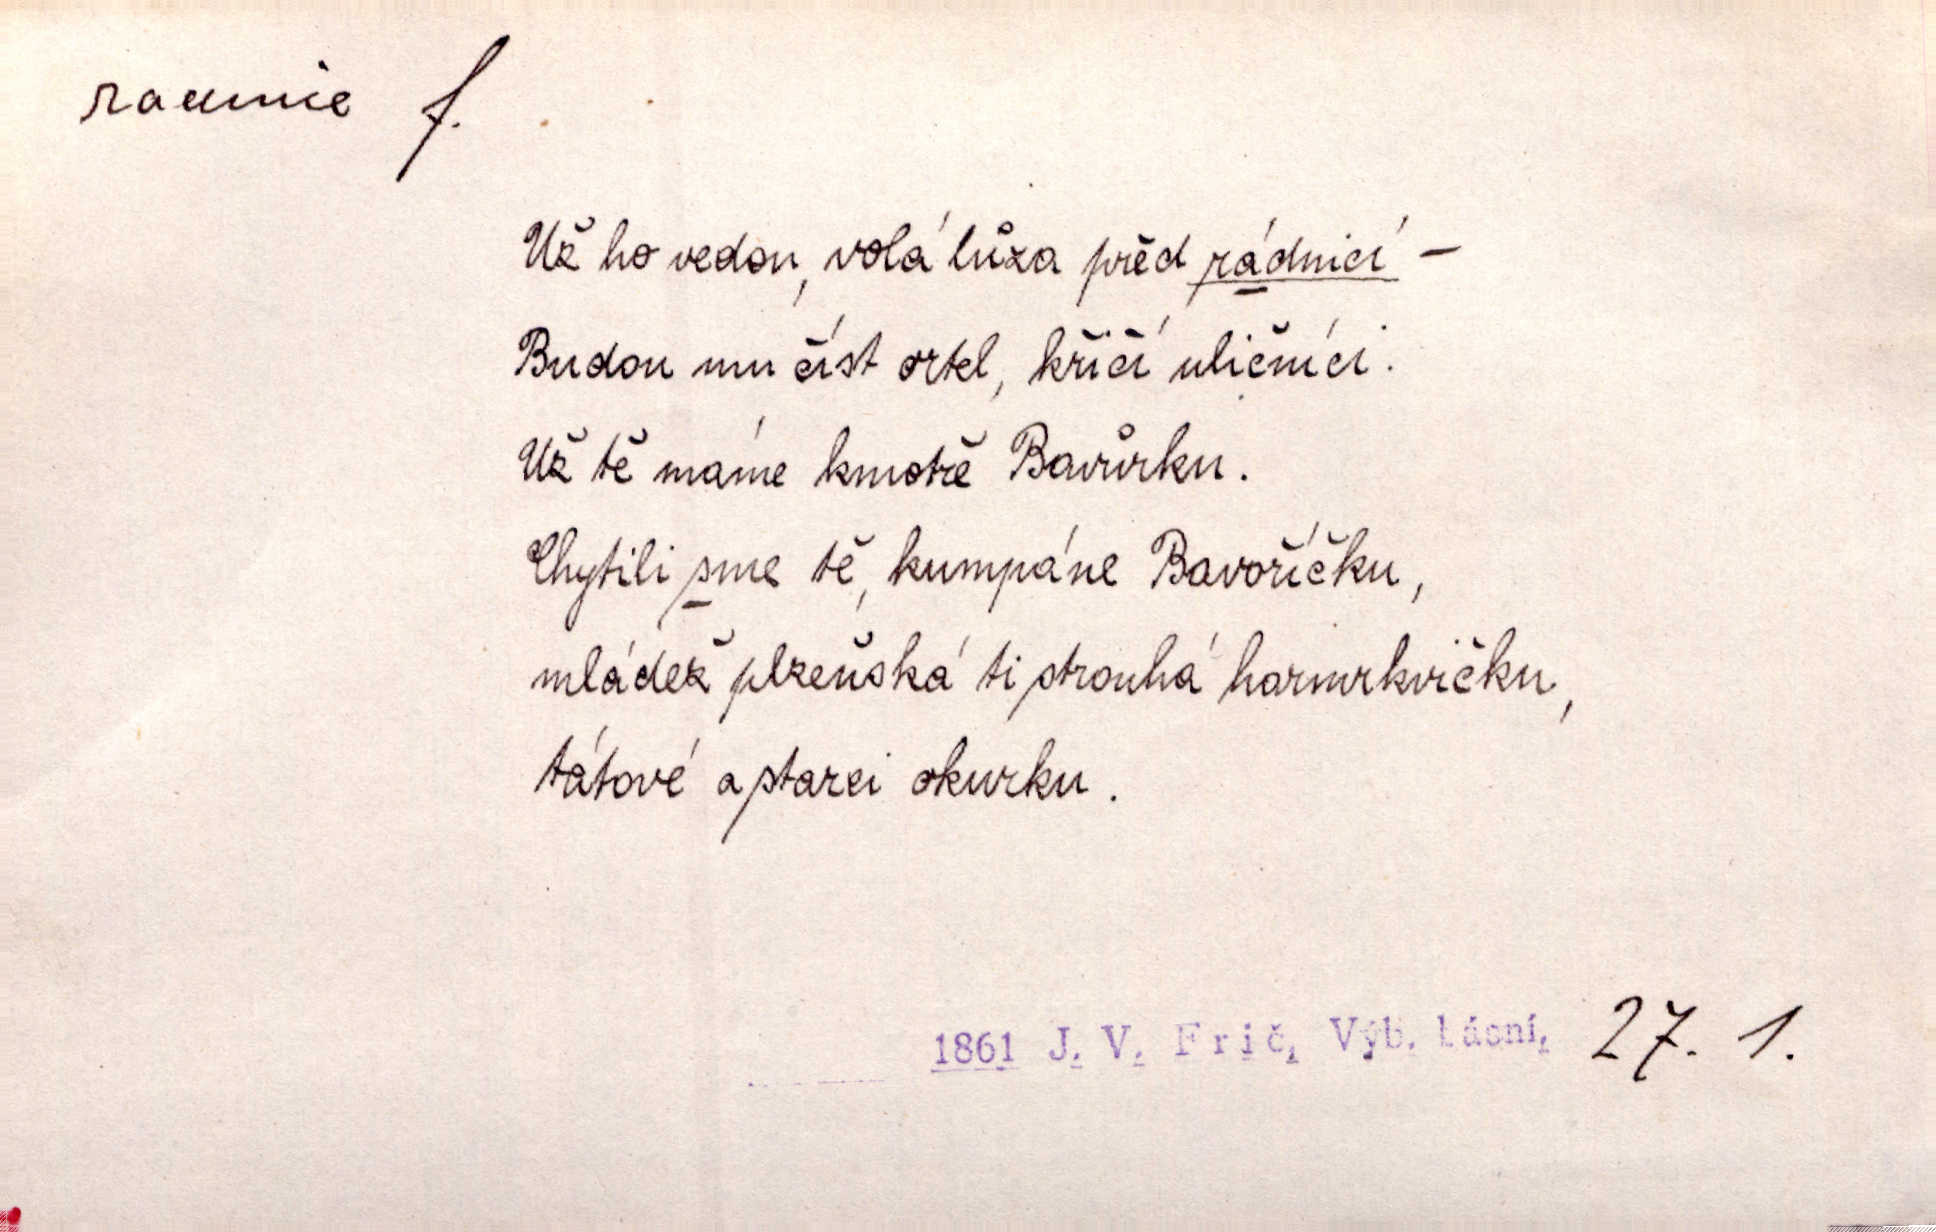 radnice f.
Už ho vedou, volá lůza před rádnicí –
Budou mu číst ortel, křičí uličníci.
Už tě máme kmotře Bavůrku.
Chytili sme tě, kumpáne Bavoříčku,
mládež plzeňská ti strouhá harmrkvičku,
tátové a starci okurku.
1861 J. V. Frič, Výb. básní, 27. 1.